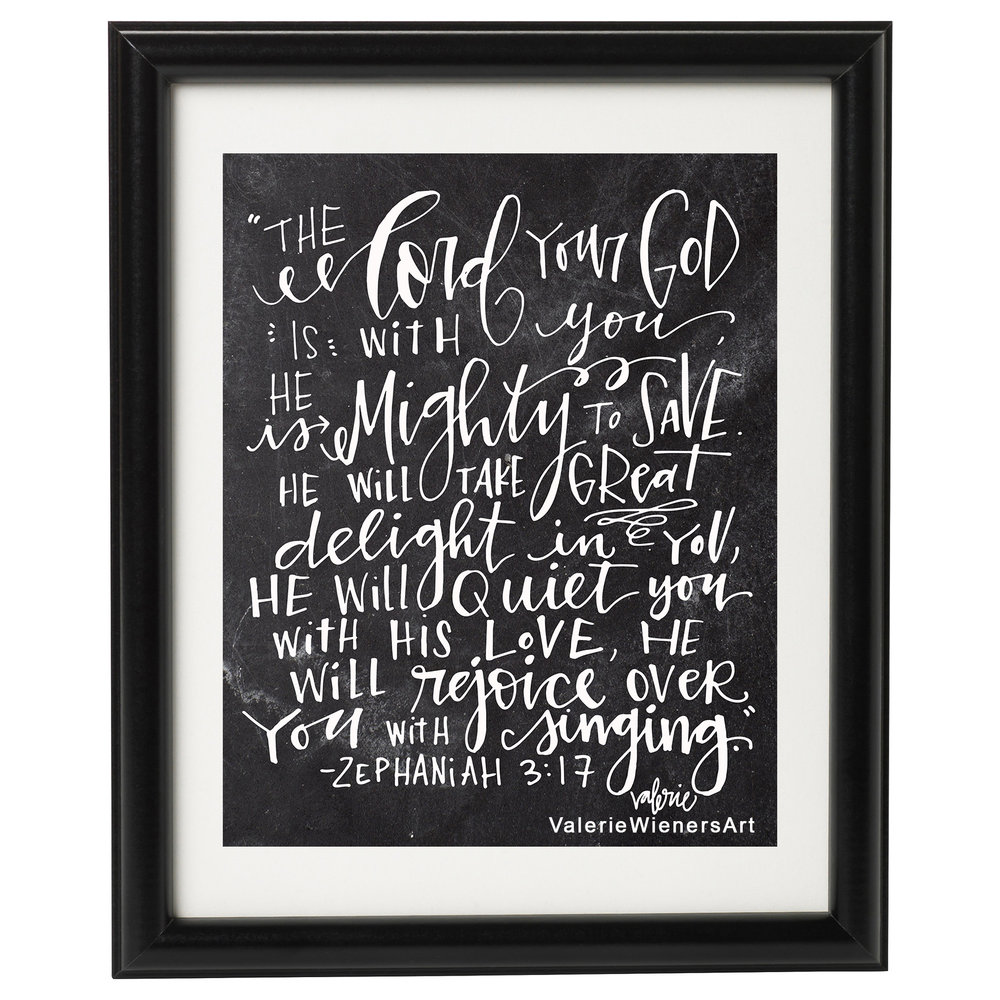 "THE Lord Your GOD
IS WiTH you,
HE
is Mighty TO SAVE.
HE WiLL TAKE GReat
delight in You,
HE WiLL Quiet you
WiTH HIS LoVE, HE
WiLL rejoice OVER
You WiTH singing."
-ZEPHANiAH 3:17
valerie
ValerieWienersArt